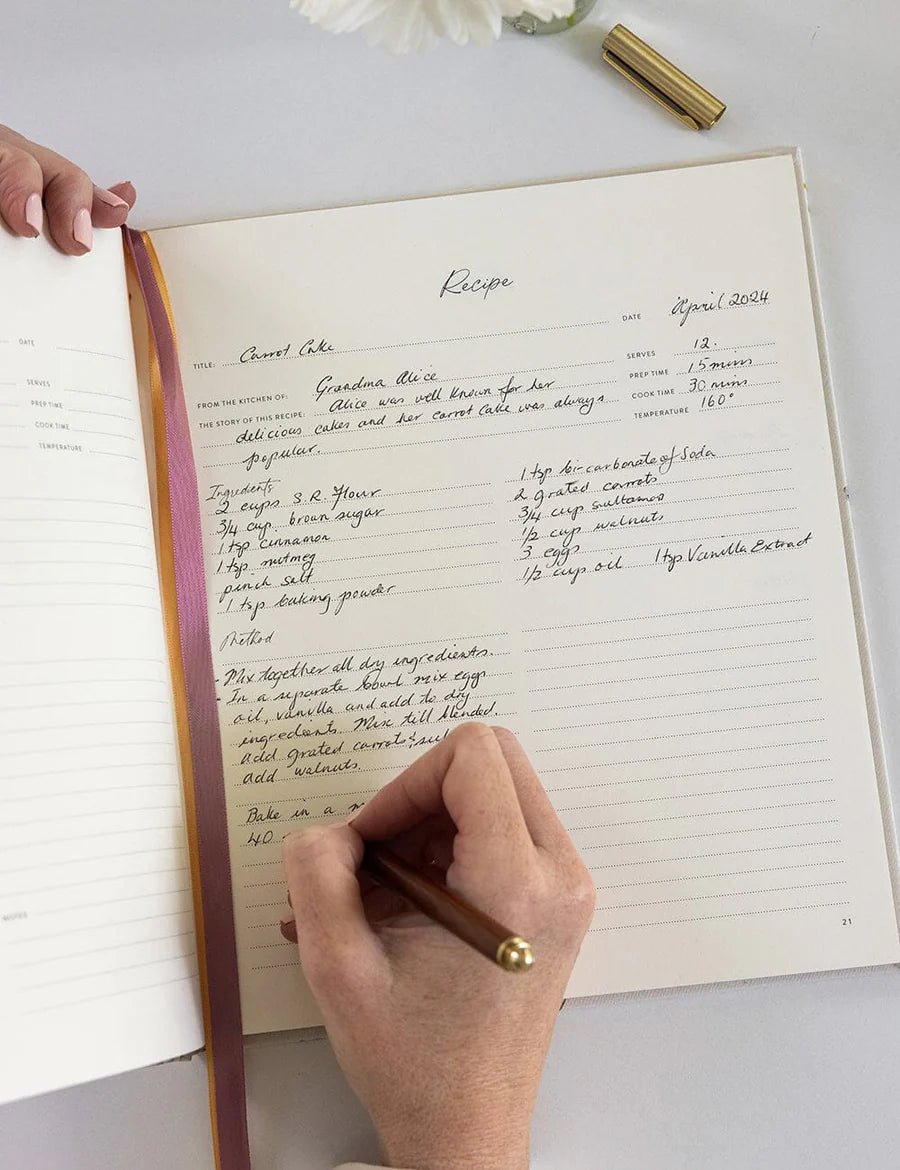 Recipe
DATE April 2024
TITLE: Carrot Cake
SERVES 12.
FROM THE KITCHEN OF: Grandma Alice
PREP TIME 15 mins
THE STORY OF THIS RECIPE: Alice was well known for her
COOK TIME 30 mins
delicious cakes and her carrot cake was always
TEMPERATURE 160°
popular.
Ingredients
2 cups S.R. Flour
3/4 cup brown sugar
1 tsp cinnamon
1 tsp nutmeg
pinch salt
1 tsp baking powder
1 tsp bi-carbonate of Soda
2 grated carrots
3/4 cup sultanas
1/2 cup walnuts
3 eggs
1/2 cup oil 1 tsp Vanilla Extract
Method
- Mix together all dry ingredients.
- In a separate bowl mix eggs
oil, vanilla and add to dry
ingredients. Mix till blended.
Add grated carrots & sul
add walnuts.
Bake in a m
40
21
DATE
SERVES
PREP TIME
COOK TIME
TEMPERATURE
NOTES